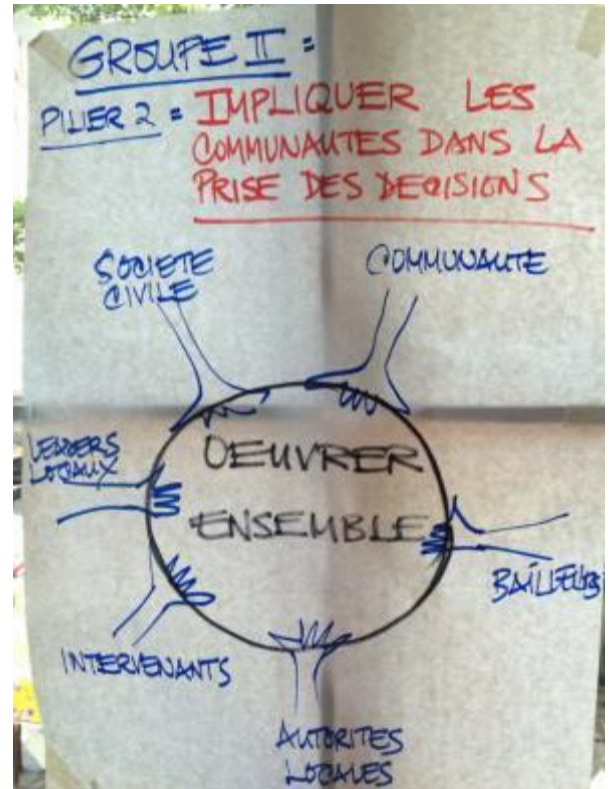 GROUPE II =
PILIER 2 = IMPLIQUER LES
COMMUNAUTES DANS LA
PRISE DES DECISIONS
SOCIETE
CIVILE
COMMUNAUTE
LEADERS
LOCAUX
OEUVRER
ENSEMBLE
BAILLEURS
INTERVENANTS
AUTORITES
LOCALES